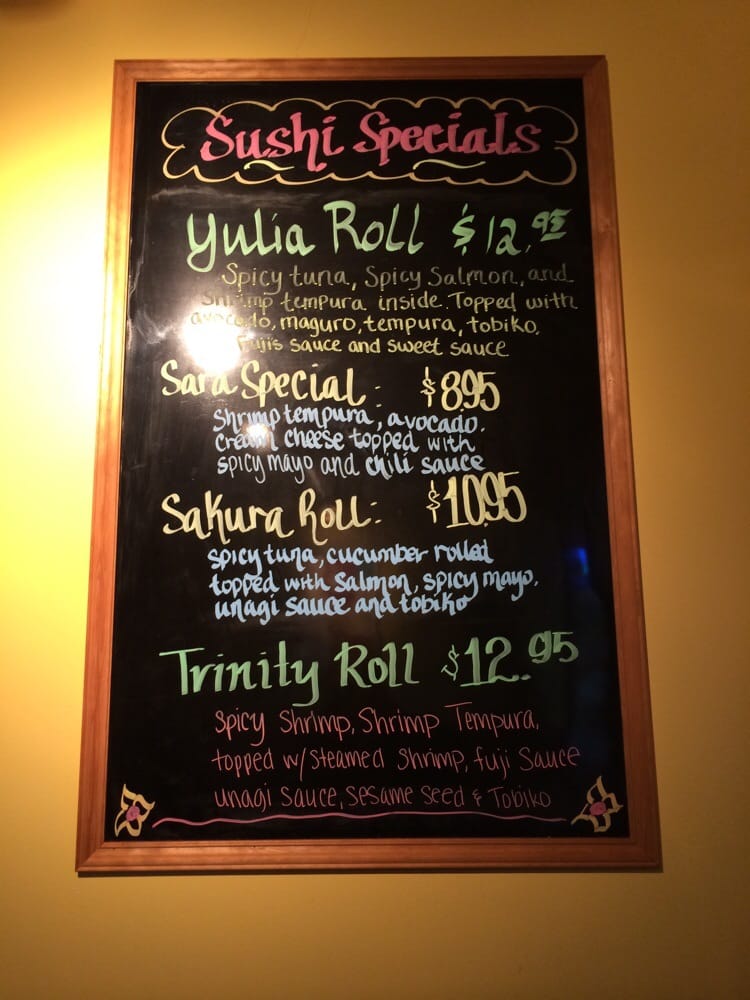 Sushi Specials
Yulia Roll $12.95
Spicy tuna, Spicy Salmon, and
Shrimp tempura inside. Topped with
avocado, maguro, tempura, tobiko,
Fujis sauce and sweet sauce
Sara Special: $8.95
Shrimp tempura, avocado.
cream cheese topped with
spicy mayo and chili sauce
Sakura Roll: $10.95
spicy tuna, cucumber rolled
topped with Salmon, spicy mayo,
unagi sauce and tobiko
Trinity Roll $12.95
Spicy Shrimp, Shrimp Tempura,
topped w/steamed Shrimp, fuji Sauce
unagi sauce, sesame seed & Tobiko